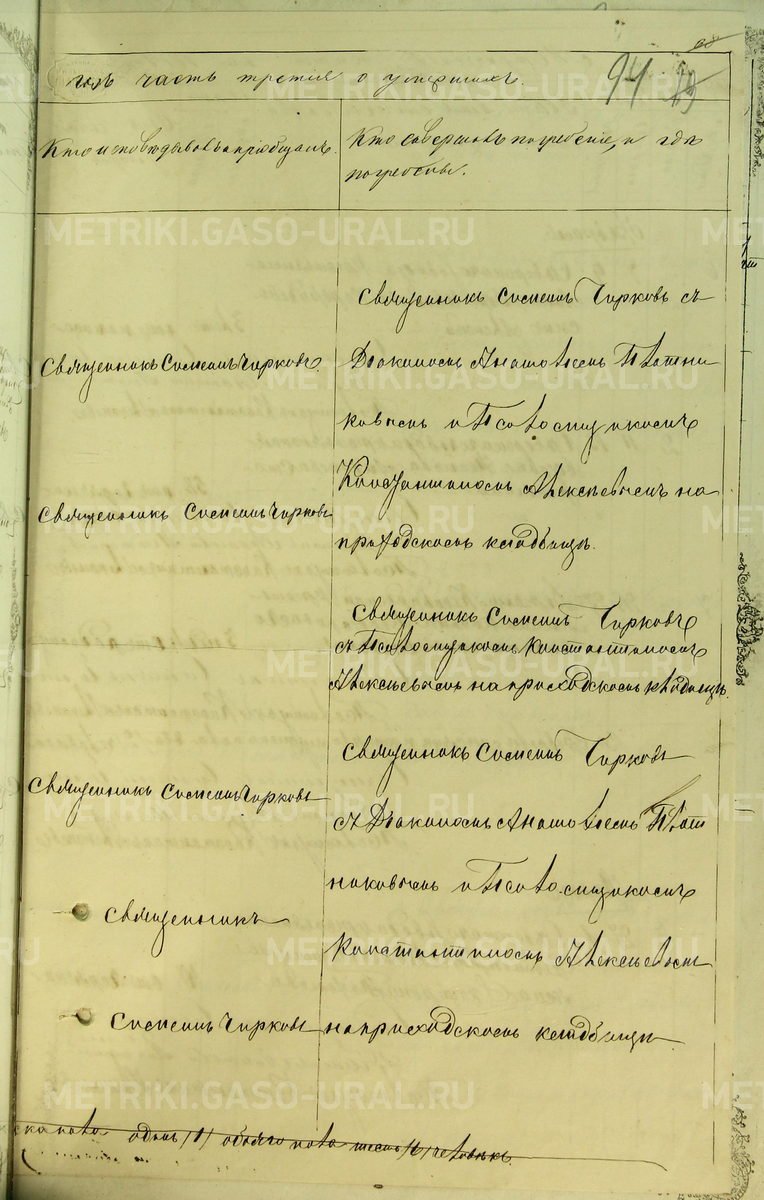 68
годъ часть третія о умершихъ. 94
Кто исповѣдывалъ и пріобщалъ.
Кто совершалъ погребеніе, и гдѣ
погребены.
METRIKI.GASO-URAL.RU
Священникъ Симеонъ Чирковъ съ
Священникъ Симеонъ Чирковъ.
Діакономъ Анатоліемъ Плотни
ковымъ и Псаломщикомъ
Константиномъ Алексѣевымъ на
Священникъ Симеонъ Чирковъ
приходскомъ кладбищѣ.
Священникъ Симеонъ Чирковъ
съ Псаломщикомъ Константиномъ
Алексѣевымъ на приходскомъ кладбищѣ.
Священникъ Симеонъ Чирковъ
Священникъ Симеонъ Чирковъ
съ Діакономъ Анатоліемъ Плот
никовымъ и Псаломщикомъ
Священникъ
Константиномъ Алексѣевымъ
Симеонъ Чирковъ
на приходскомъ кладбищѣ.
пола одинъ /1/ обоего пола шесть /6/ человѣкъ.